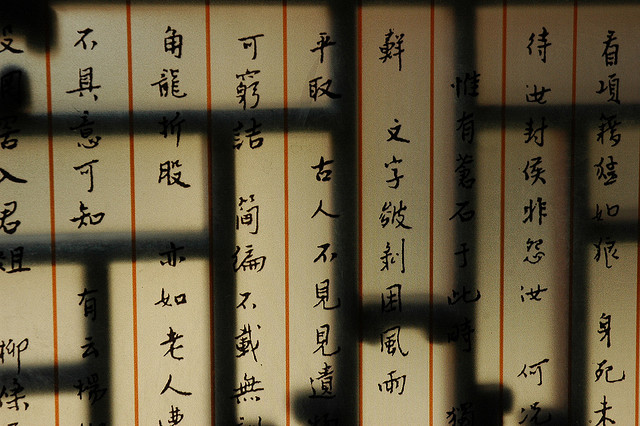 看項籍猛如狼 身死未
待汝封侯非怨汝 何况
惟有蒼石于此時 獨
鮮 文字皴剥困風雨
平取 古人不見見遺
可窮詰 簡編不載無
角龍折股 亦如老人遭
不具意可知 有云楊
入君俎 柳條